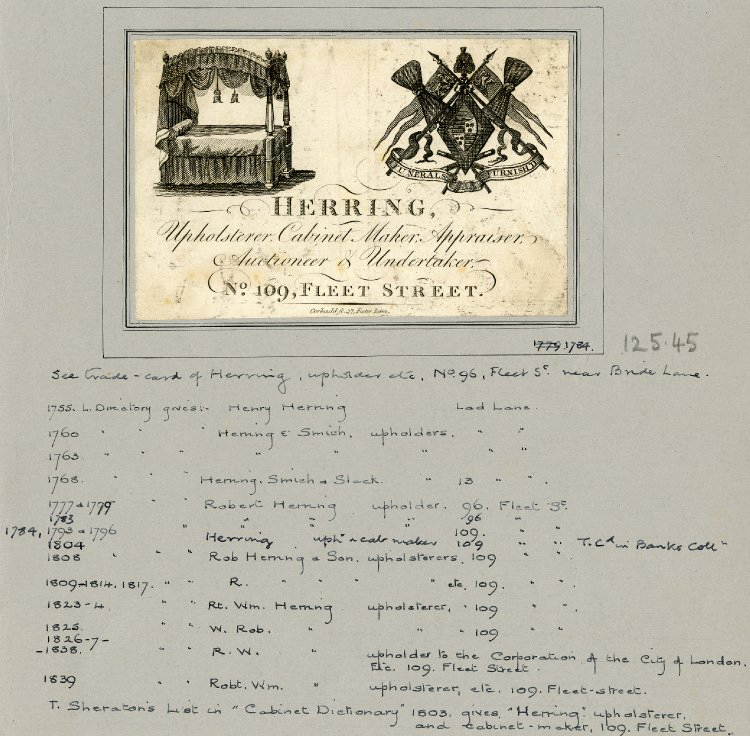 FUNERALS FURNISH'D
HERRING,
Upholsterer, Cabinet Maker, Appraiser,
Auctioneer & Undertaker,
No. 109, FLEET STREET.
Corbould sc. 27, Fetter Lane.
1779 1784.
125.45
See trade-card of Herring, upholder etc, No. 96, Fleet St. near Bride Lane.
1755. L. Directory gives:- Henry Herring Lad Lane.
1760 " " " Herring & Smith, upholders. " "
1763 " " " " " " " "
1768. " " Herring, Smith & Slack. " 13 " "
1777 & 1779 " " Robert Herring upholder. 96. Fleet St.
1783 " " " 96 "
1784, 1793 & 1796 Herring uph. & cab. maker 109. " "
1804 " " " 109 " " T. Cd in Banks Coll"
1808 " " Rob Herring & Son. upholsterers, 109 " "
1809-1814. 1817. " " R. " " " etc. 109. " "
1823-4. " " Rt. Wm. Herring upholsterer, " 109 " "
1825. " " W. Rob. " " 109 " "
1826-7-
-1838. " " R. W. " upholder to the Corporation of the City of London.
Etc. 109. Fleet Street.
1839 " " Robt. Wm. " upholsterer, etc. 109. Fleet-street.
T. Sheraton's List in "Cabinet Dictionary" 1803. gives, "Herring" upholsterer,
and cabinet-maker, 109. Fleet Street.